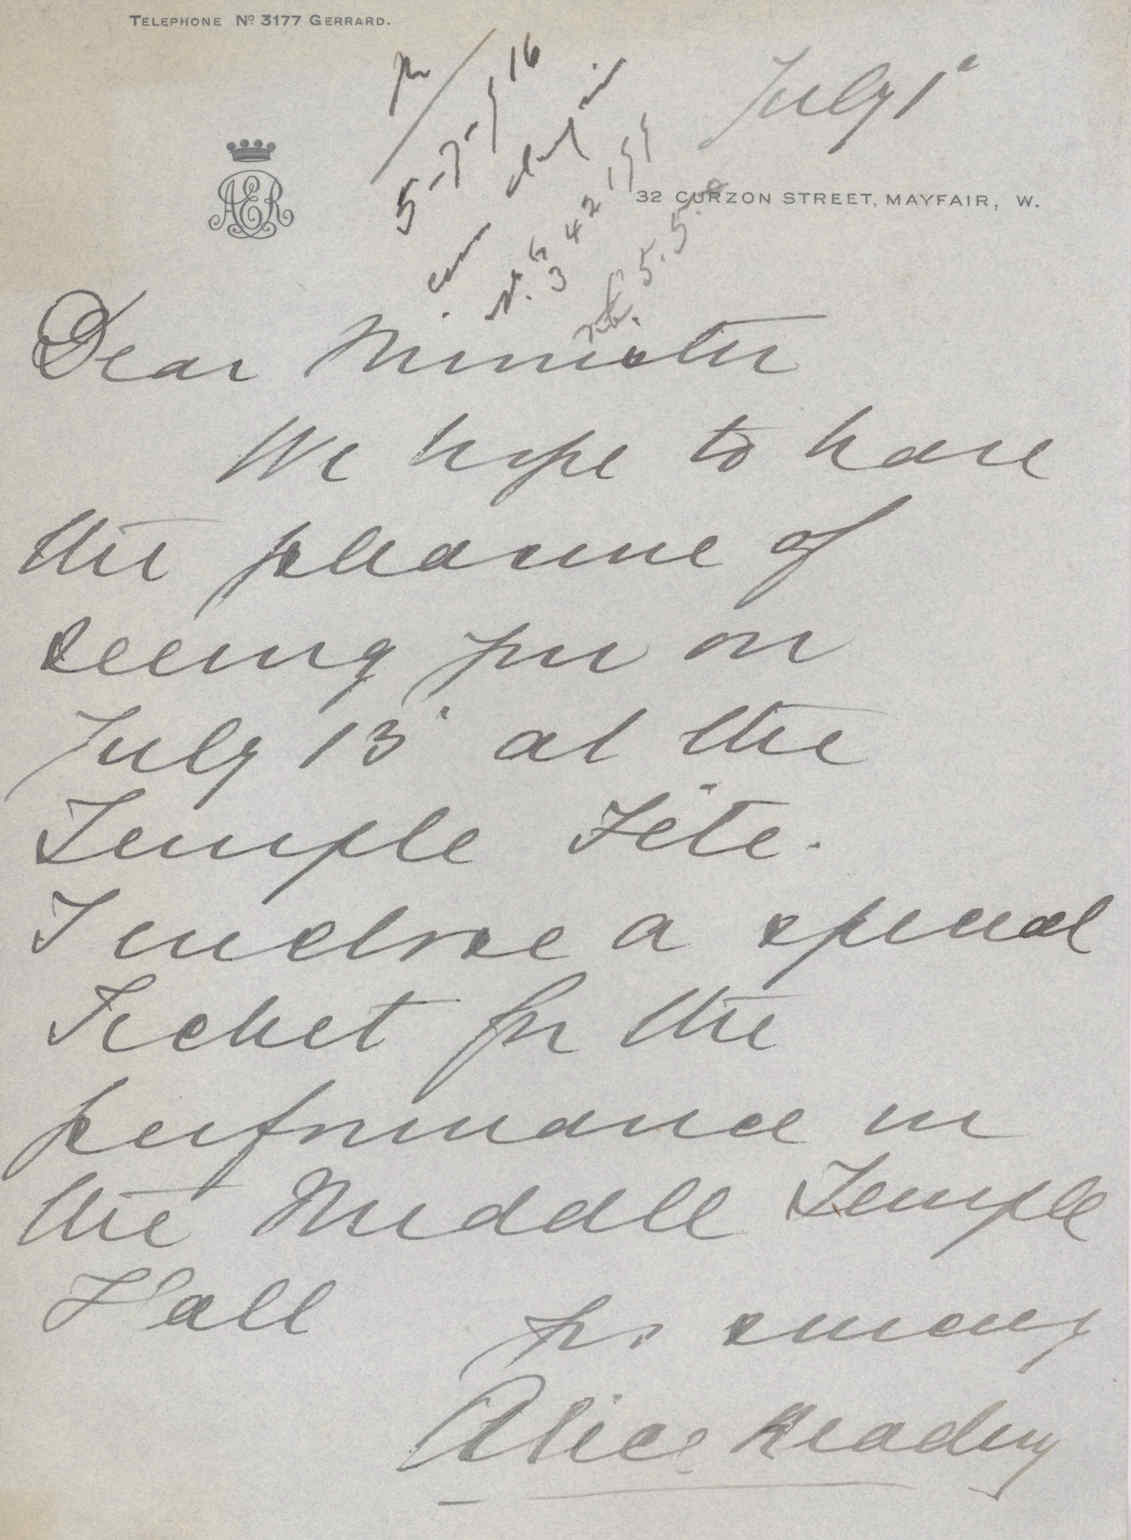 TELEPHONE Nº 3177 GERRARD.
July 1st
5-7-16
AER
32 CURZON STREET, MAYFAIR, W.
Dear Minister
We hope to have
the pleasure of
seeing you on
July 13th at the
Temple Fête.
I enclose a special
Ticket for the
performance in
the Middle Temple
Hall
Yrs sincerely
Alice Reading